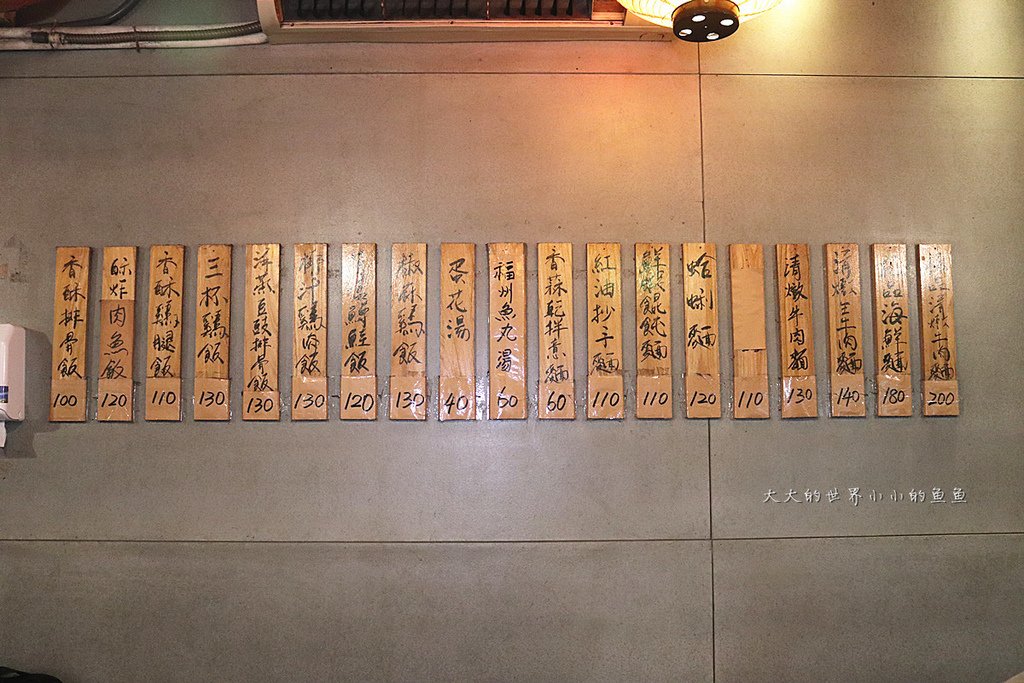 香酥排骨飯 100
酥炸肉魚飯 120
香酥鷄腿飯 110
三杯鷄飯 130
洋蔥豆豉排骨飯 130
鷄肉飯 130
鮭飯 120
椒麻鷄飯 130
蛋花湯 40
福州魚丸湯 60
香蒜乾拌素麵 60
紅油抄手麵 110
餛飩麵 110
蛤蜊麵 120
110
清燉牛肉麵 130
牛肉麵 140
海鮮麵 180
清燉牛肉麵 200
大大的世界小小的鱼鱼